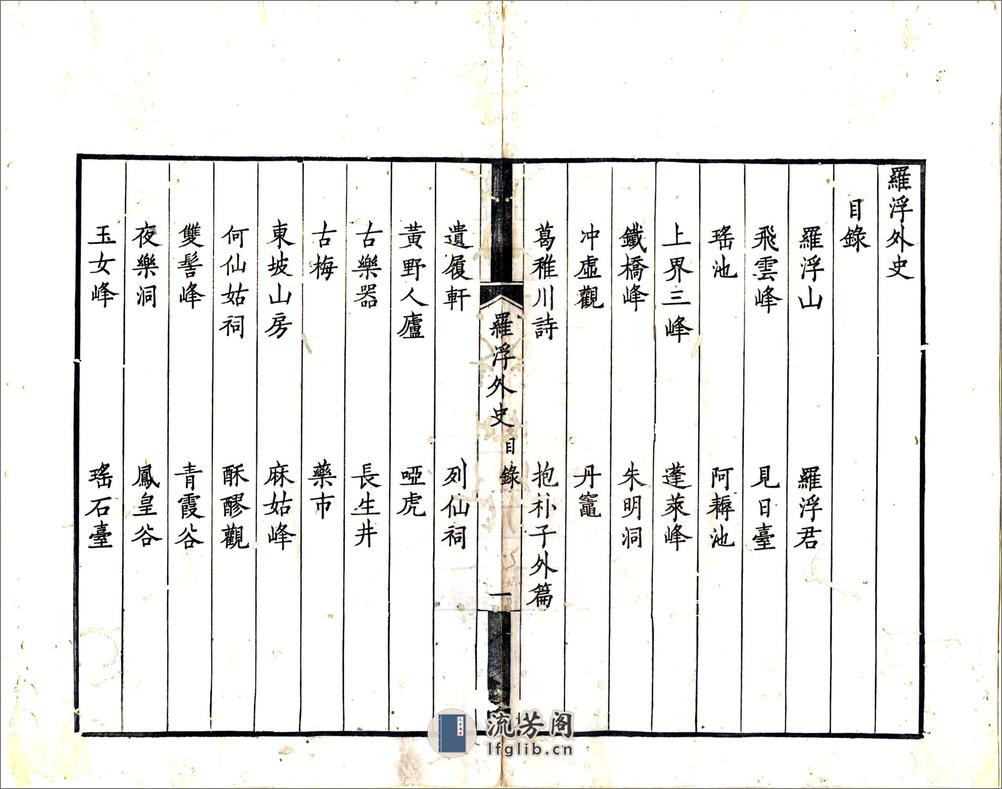 羅浮外史
目錄
羅浮山　羅浮君
飛雲峰　見日臺
瑤池　阿耨池
上界三峰　蓬萊峰
鐵橋峰　朱明洞
冲虛觀　丹竈
葛稚川詩　抱朴子外篇
羅浮外史　目錄　一
遺履軒　列仙祠
黃野人廬　啞虎
古樂器　長生井
古梅　藥市
東坡山房　麻姑峰
何仙姑祠　酥醪觀
雙髻峰　青霞谷
夜樂洞　鳳皇谷
玉女峰　瑤石臺
流芳阁
lfglib.cn